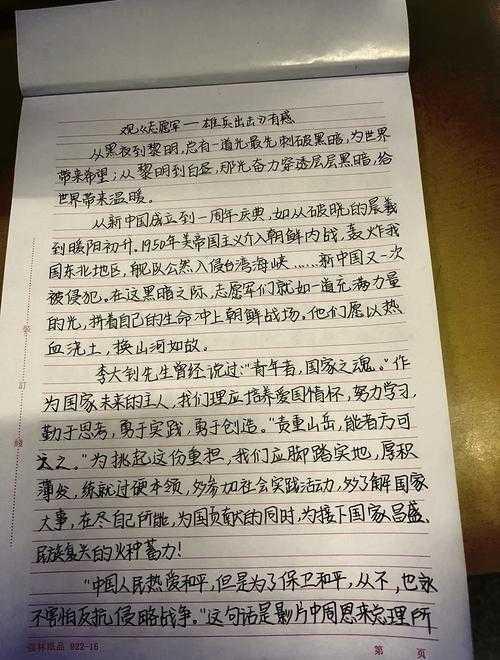 观《志愿军——雄兵出击》有感
从黑夜到黎明,总有一道光最先刺破黑暗,为世界
带来希望;从黎明到白昼,那光奋力穿透层层黑暗,给
世界带来温暖。
从新中国成立到一周年庆典,如从破晓的晨曦
到暖阳初升。1950年美帝国主义介入朝鲜内战,轰炸我
国东北地区,舰队公然入侵台湾海峡……新中国又一次
被侵犯。在这黑暗之际,志愿军们就如一道充满力量
的光,拼着自己的生命冲上朝鲜战场。他们愿以热
血浇土,换山河如故。
李大钊先生曾经说过:“青年者,国家之魂。”作
为国家未来的主人,我们理应培养爱国情怀,努力学习,
勤于思考,勇于实践,勇于创造。“责重山岳,能者方可
之。”为挑起这份重担,我们应脚踏实地,厚积
薄发,练就过硬本领,多参加社会实践活动,多了解国家
大事,在尽自己所能,为国贡献的同时,为接下国家昌盛、
民族复兴的火种蓄力!
“中国人民热爱和平,但是为了保卫和平,从不,也永
不害怕反抗侵略战争。”这句话是影片中周恩来总理所
装
订
线
强林纸品 922-16
第 页